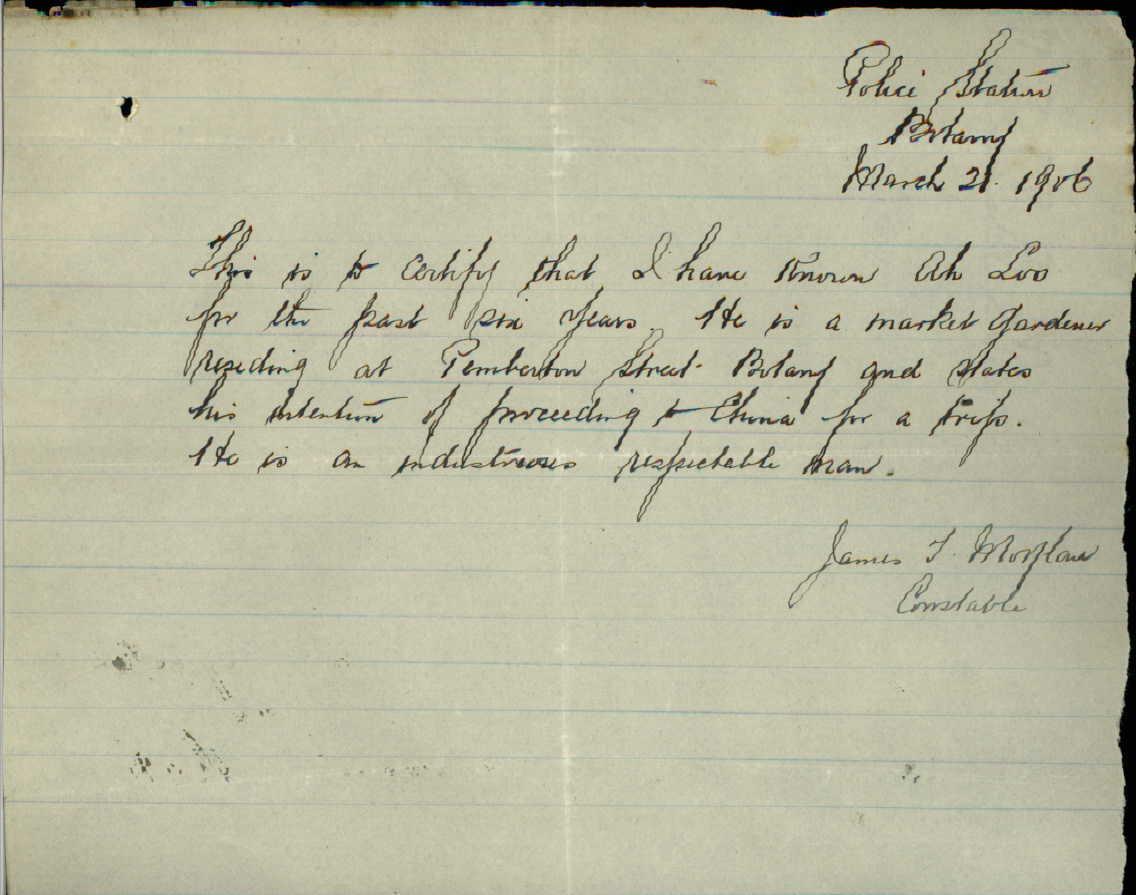 Police Station
Botany
March 21. 1906
This is to certify that I have known Ah Loo
for the past six years. He is a market gardener
residing at Pemberton Street Botany and states
his intention of proceeding to China for a trip.
He is an industrious respectable man.
James T.
Constable